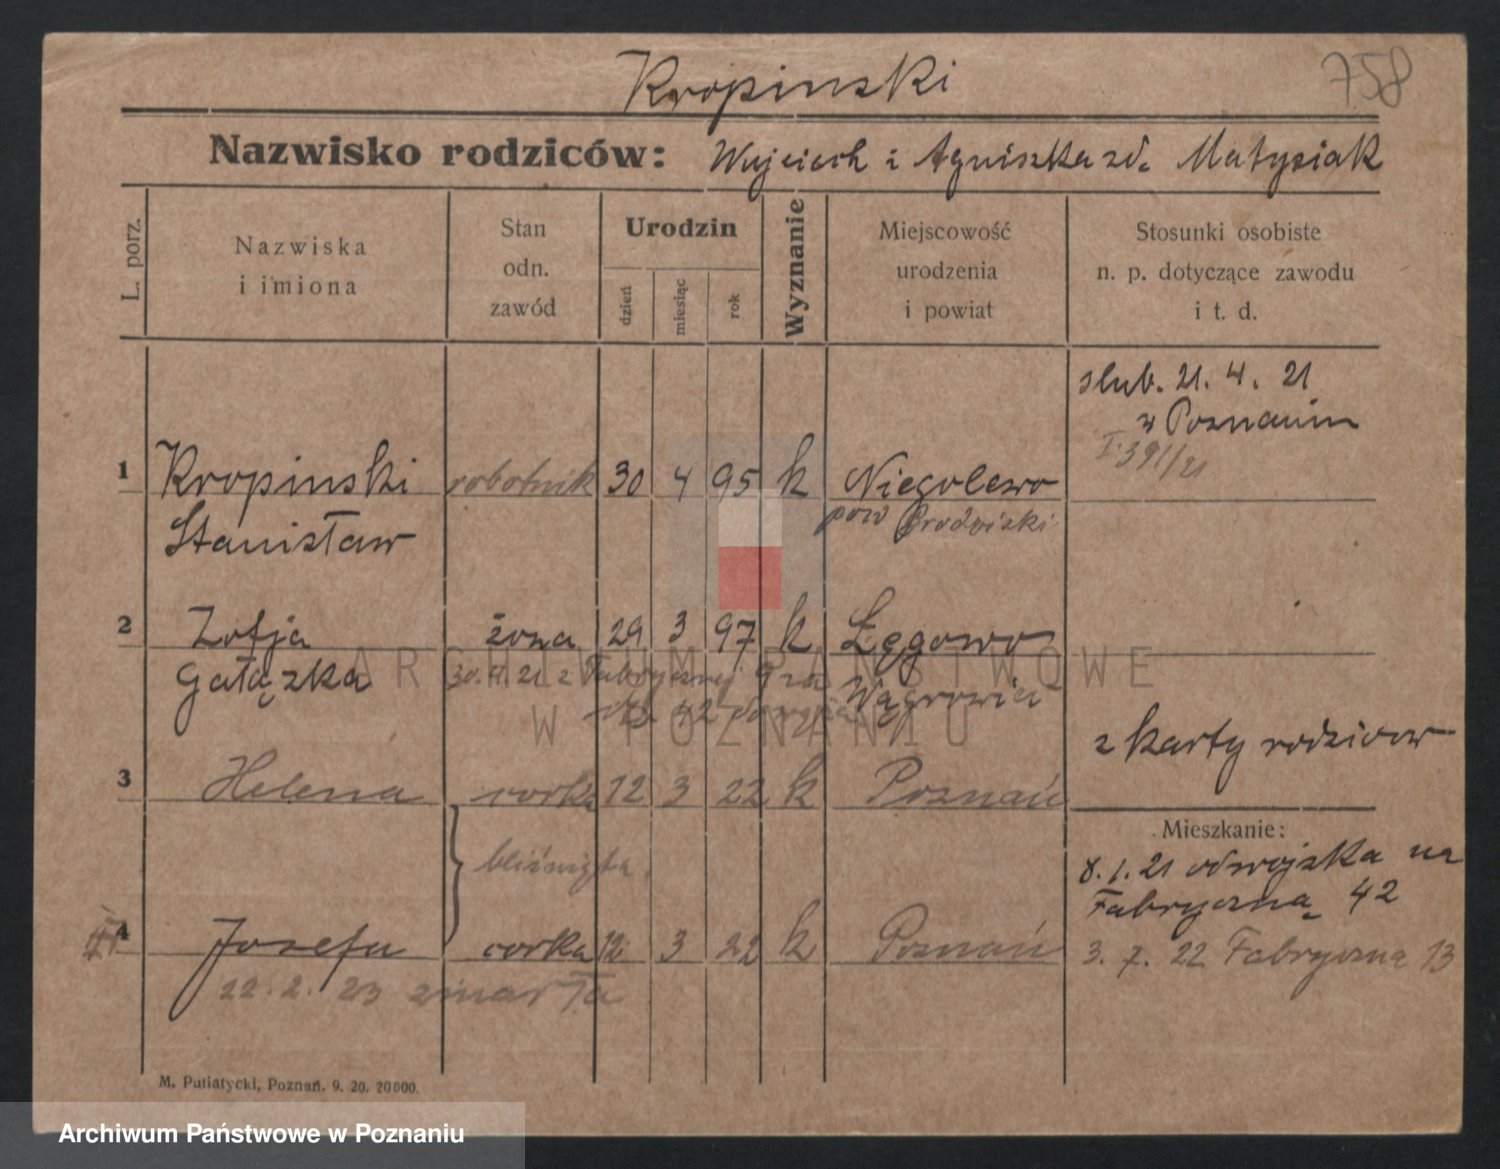 Kropinski
758
Nazwisko rodziców: Wojciech i Agniszka zd. Matysiak
L. porz.
Nazwiska i imiona
Stan odn. zawód
Urodzin
dzień
miesiąc
rok
Wyznanie
Miejscowość urodzenia i powiat
Stosunki osobiste n. p. dotyczące zawodu i t. d.
slub. 21. 4. 21
w Poznaniu
I 391/21
1 Kropinski robotnik 30 4 95 k Niegolewo
Stanisław pow Grodziski
2 Zofja żona 29 3 97 k Łęgowo
Gałązka 30. 4. 21 z Fabrycznej 9 na Wągrowiec
42
z karty rodzicow
3 Helena corka 12 3 22 k Poznań
bliźnięta
Mieszkanie:
8. 1. 21 od wojska na
Fabryczną 42
4 Jozefa corka 12. 3 22 k Poznań
3. 7. 22 Fabryczna 13
22. 2. 23 zmarła
M. Putiatycki, Poznań. 9. 20. 20000.
ARCHIWUM PAŃSTWOWE
W POZNANIU
Archiwum Państwowe w Poznaniu